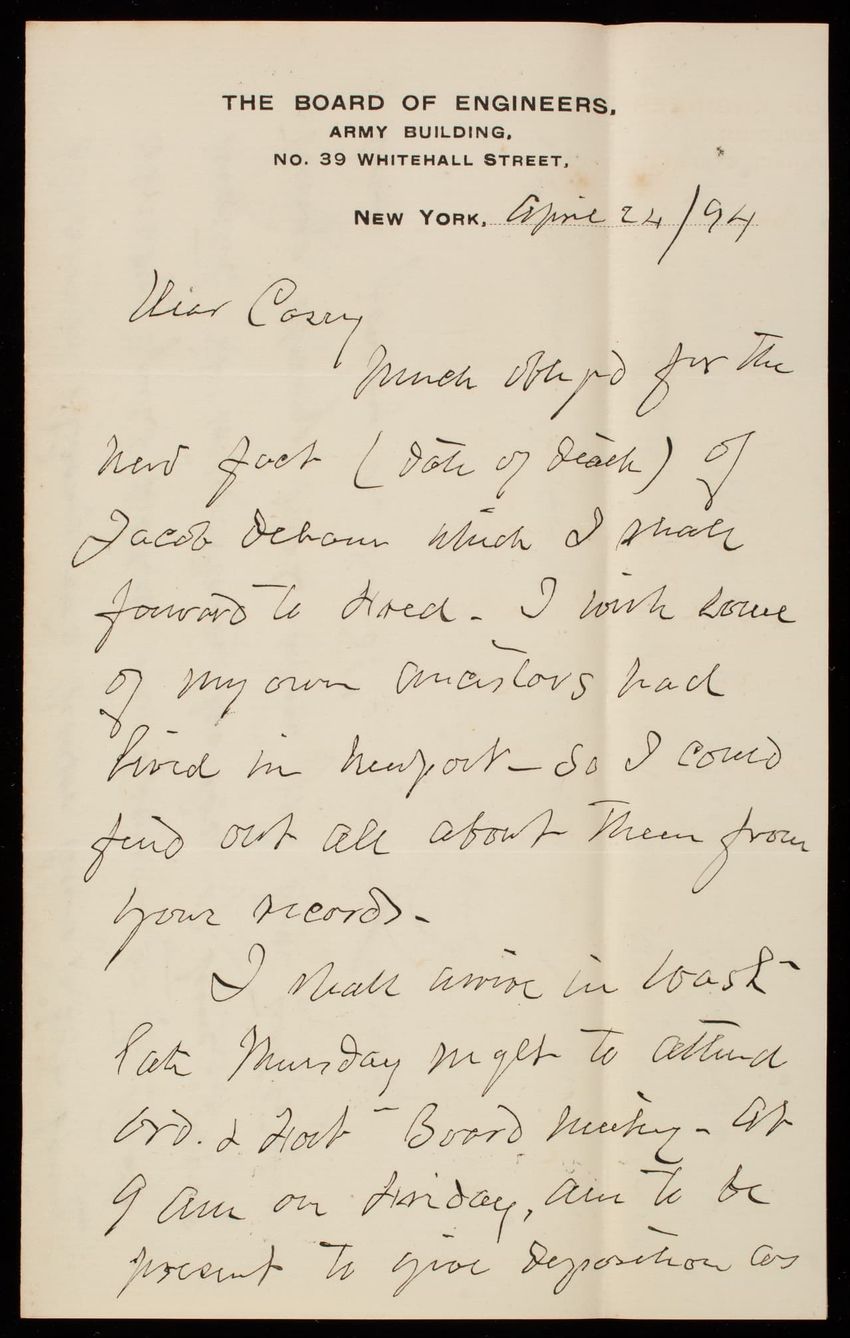 THE BOARD OF ENGINEERS,
ARMY BUILDING,
NO. 39 WHITEHALL STREET,
NEW YORK, April 24/94
Dear Casey
Much oblig'd for the
new fact (date of death) of
Jacob which I shall
forward to . I wish some
of my own ancestors had
lived in Newport - so I could
find out all about them from
your records -
I shall arrive in Wash-
late Thursday night to attend
Ord. & Fort- Board Meeting - At
9 am on Friday, am to be
present to give deposition as